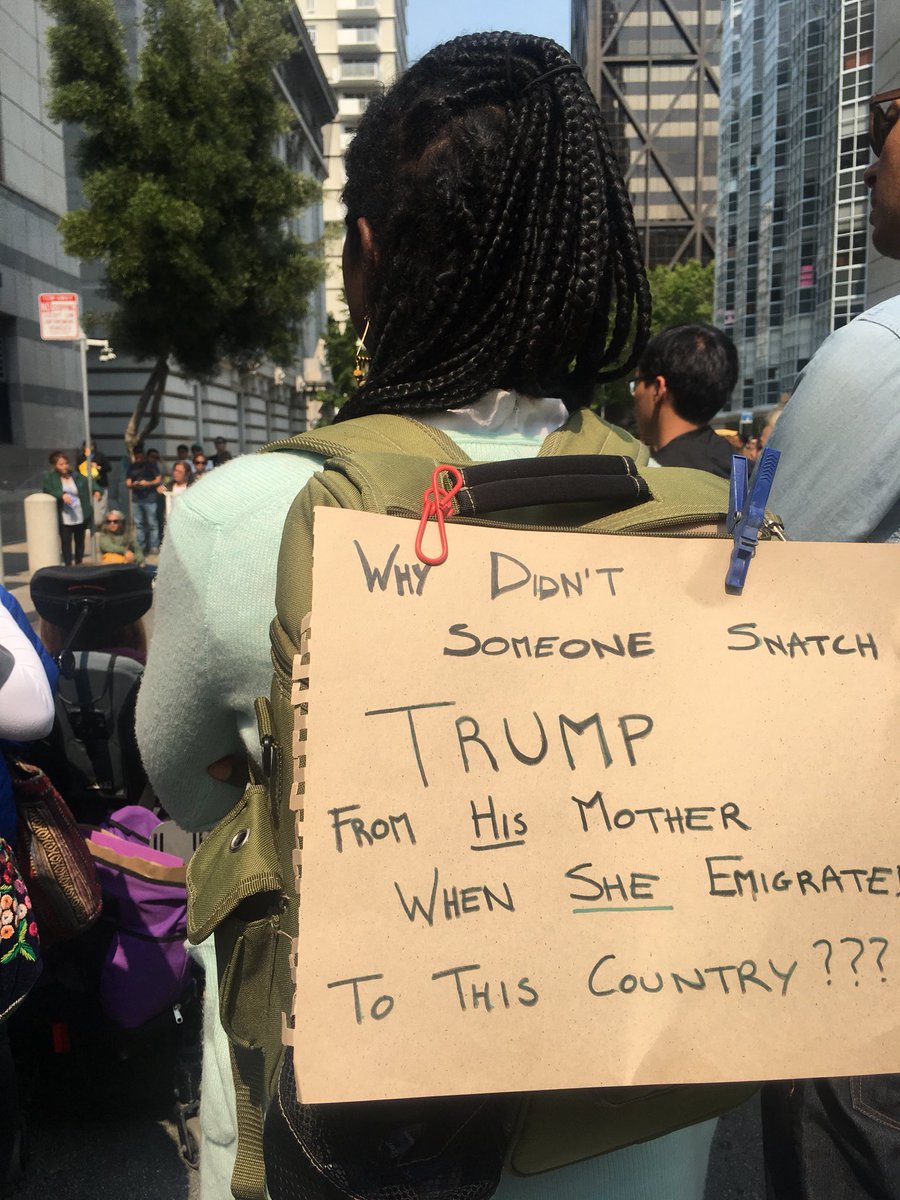 WHY DIDN'T
SOMEONE SNATCH
TRUMP
FROM HIS MOTHER
WHEN SHE EMIGRATED
TO THIS COUNTRY???